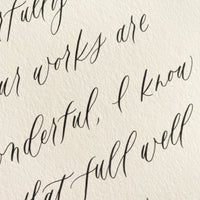 rfully
ur works are
onderful, I know
that full well